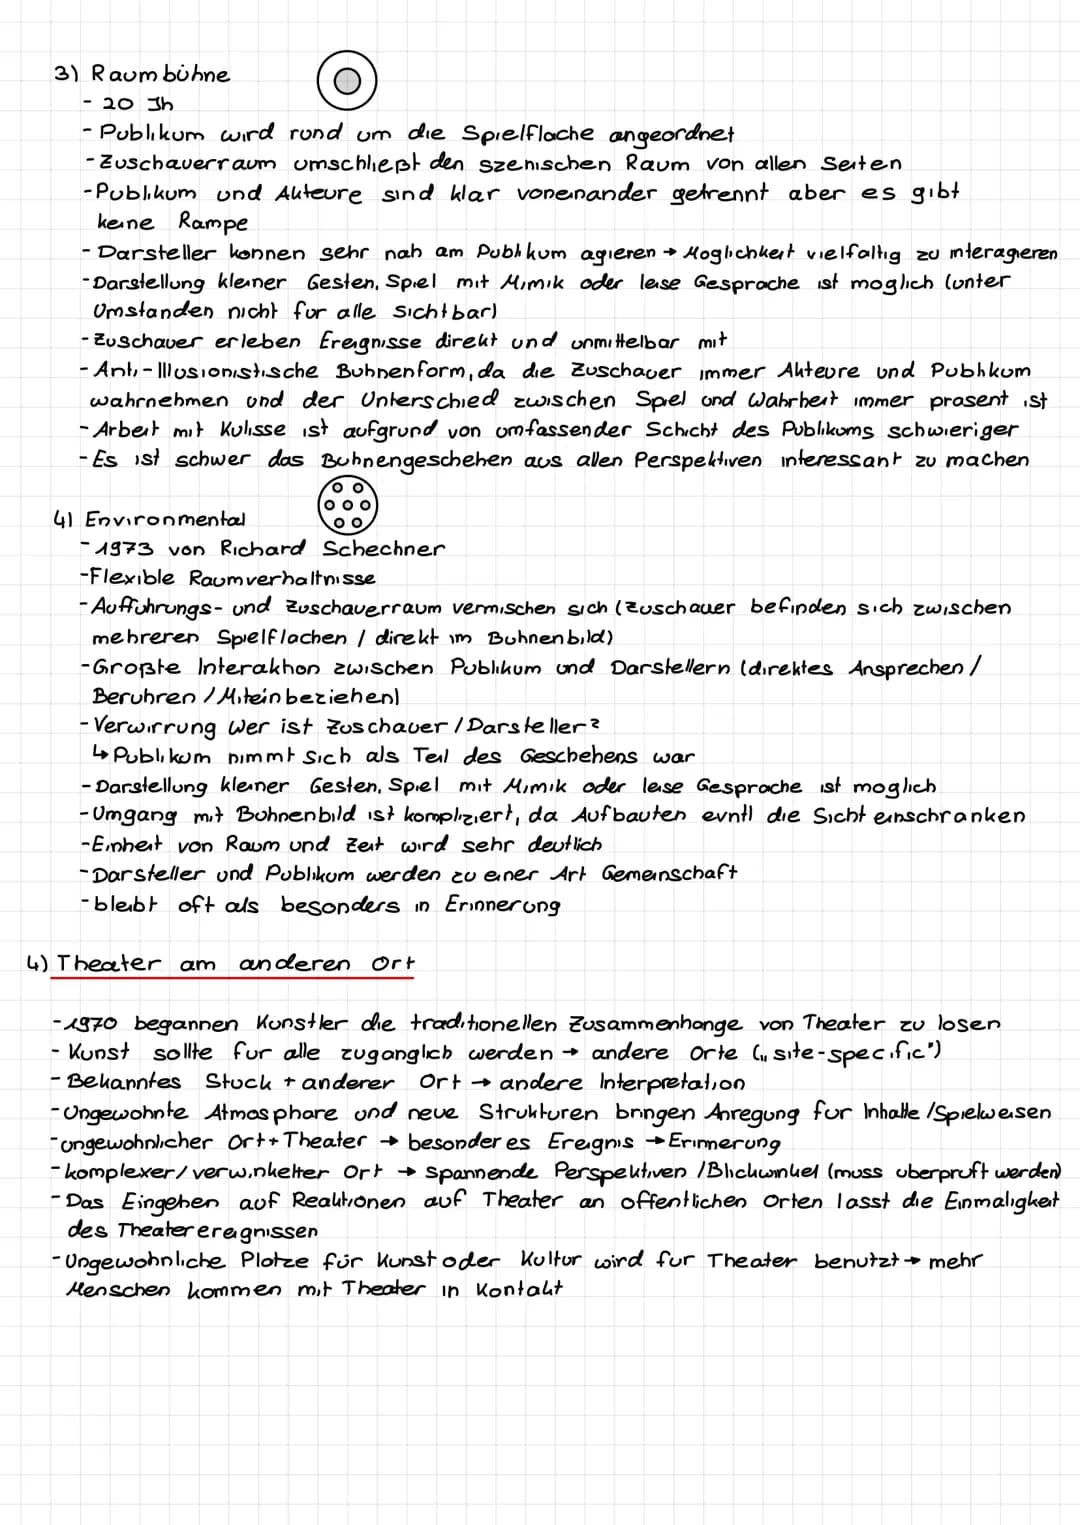 3) Raumbühne
- 20 Jh
- Publikum wird rund um die Spielflache angeordnet
- Zuschauerraum umschließt den szenischen Raum von allen Seiten
- Publikum und Akteure sind klar voneinander getrennt aber es gibt
keine Rampe
- Darsteller konnen sehr nah am Publikum agieren → Moglichkeit vielfaltig zu interagieren
- Darstellung kleiner Gesten, Spiel mit Mimik oder leise Gesprache ist moglich (unter
Umstanden nicht fur alle sichtbar)
- Zuschauer erleben Ereignisse direkt und unmittelbar mit
- Anti-Illusionistische Buhnenform, da die Zuschauer immer Akteure und Publikum
wahrnehmen und der Unterschied zwischen Spiel und Wahrheit immer prasent ist
- Arbeit mit Kulisse ist aufgrund von umfassender Schicht des Publikums schwieriger
- Es ist schwer das Buhnengeschehen aus allen Perspektiven interessant zu machen
4) Environmental
- 1973 von Richard Schechner
- Flexible Raumverhaltnisse
- Auffuhrungs- und Zuschauerraum vermischen sich (Zuschauer befinden sich zwischen
mehreren Spielflachen / direkt im Buhnenbild)
- Großte Interaktion zwischen Publikum und Darstellern (direktes Ansprechen /
Beruhren / Miteinbeziehen)
- Verwirrung wer ist Zuschauer / Darsteller?
↳ Publikum nimmt sich als Teil des Geschehens war
- Darstellung kleiner Gesten, Spiel mit Mimik oder leise Gesprache ist moglich
- Umgang mit Buhnenbild ist kompliziert, da Aufbauten evntl die Sicht einschranken
- Einheit von Raum und Zeit wird sehr deutlich
- Darsteller und Publikum werden zu einer Art Gemeinschaft
- bleibt oft als besonders in Erinnerung
4) Theater am anderen Ort
- 1970 begannen Kunstler die traditionellen Zusammenhange von Theater zu losen
- Kunst sollte fur alle zuganglich werden → andere Orte („site-specific")
- Bekanntes Stuck + anderer Ort → andere Interpretation
- Ungewohnte Atmosphare und neue Strukturen bringen Anregung fur Inhalte / Spielweisen
- ungewohnlicher Ort + Theater → besonderes Ereignis → Erinnerung
- komplexer / verwinkelter Ort → spannende Perspektiven / Blickwinkel (muss uberpruft werden)
- Das Eingehen auf Reaktionen auf Theater an offentlichen Orten lasst die Einmaligkeit
des Theaterereignissen
- Ungewohnliche Platze für Kunst oder Kultur wird fur Theater benutzt → mehr
Menschen kommen mit Theater in Kontakt